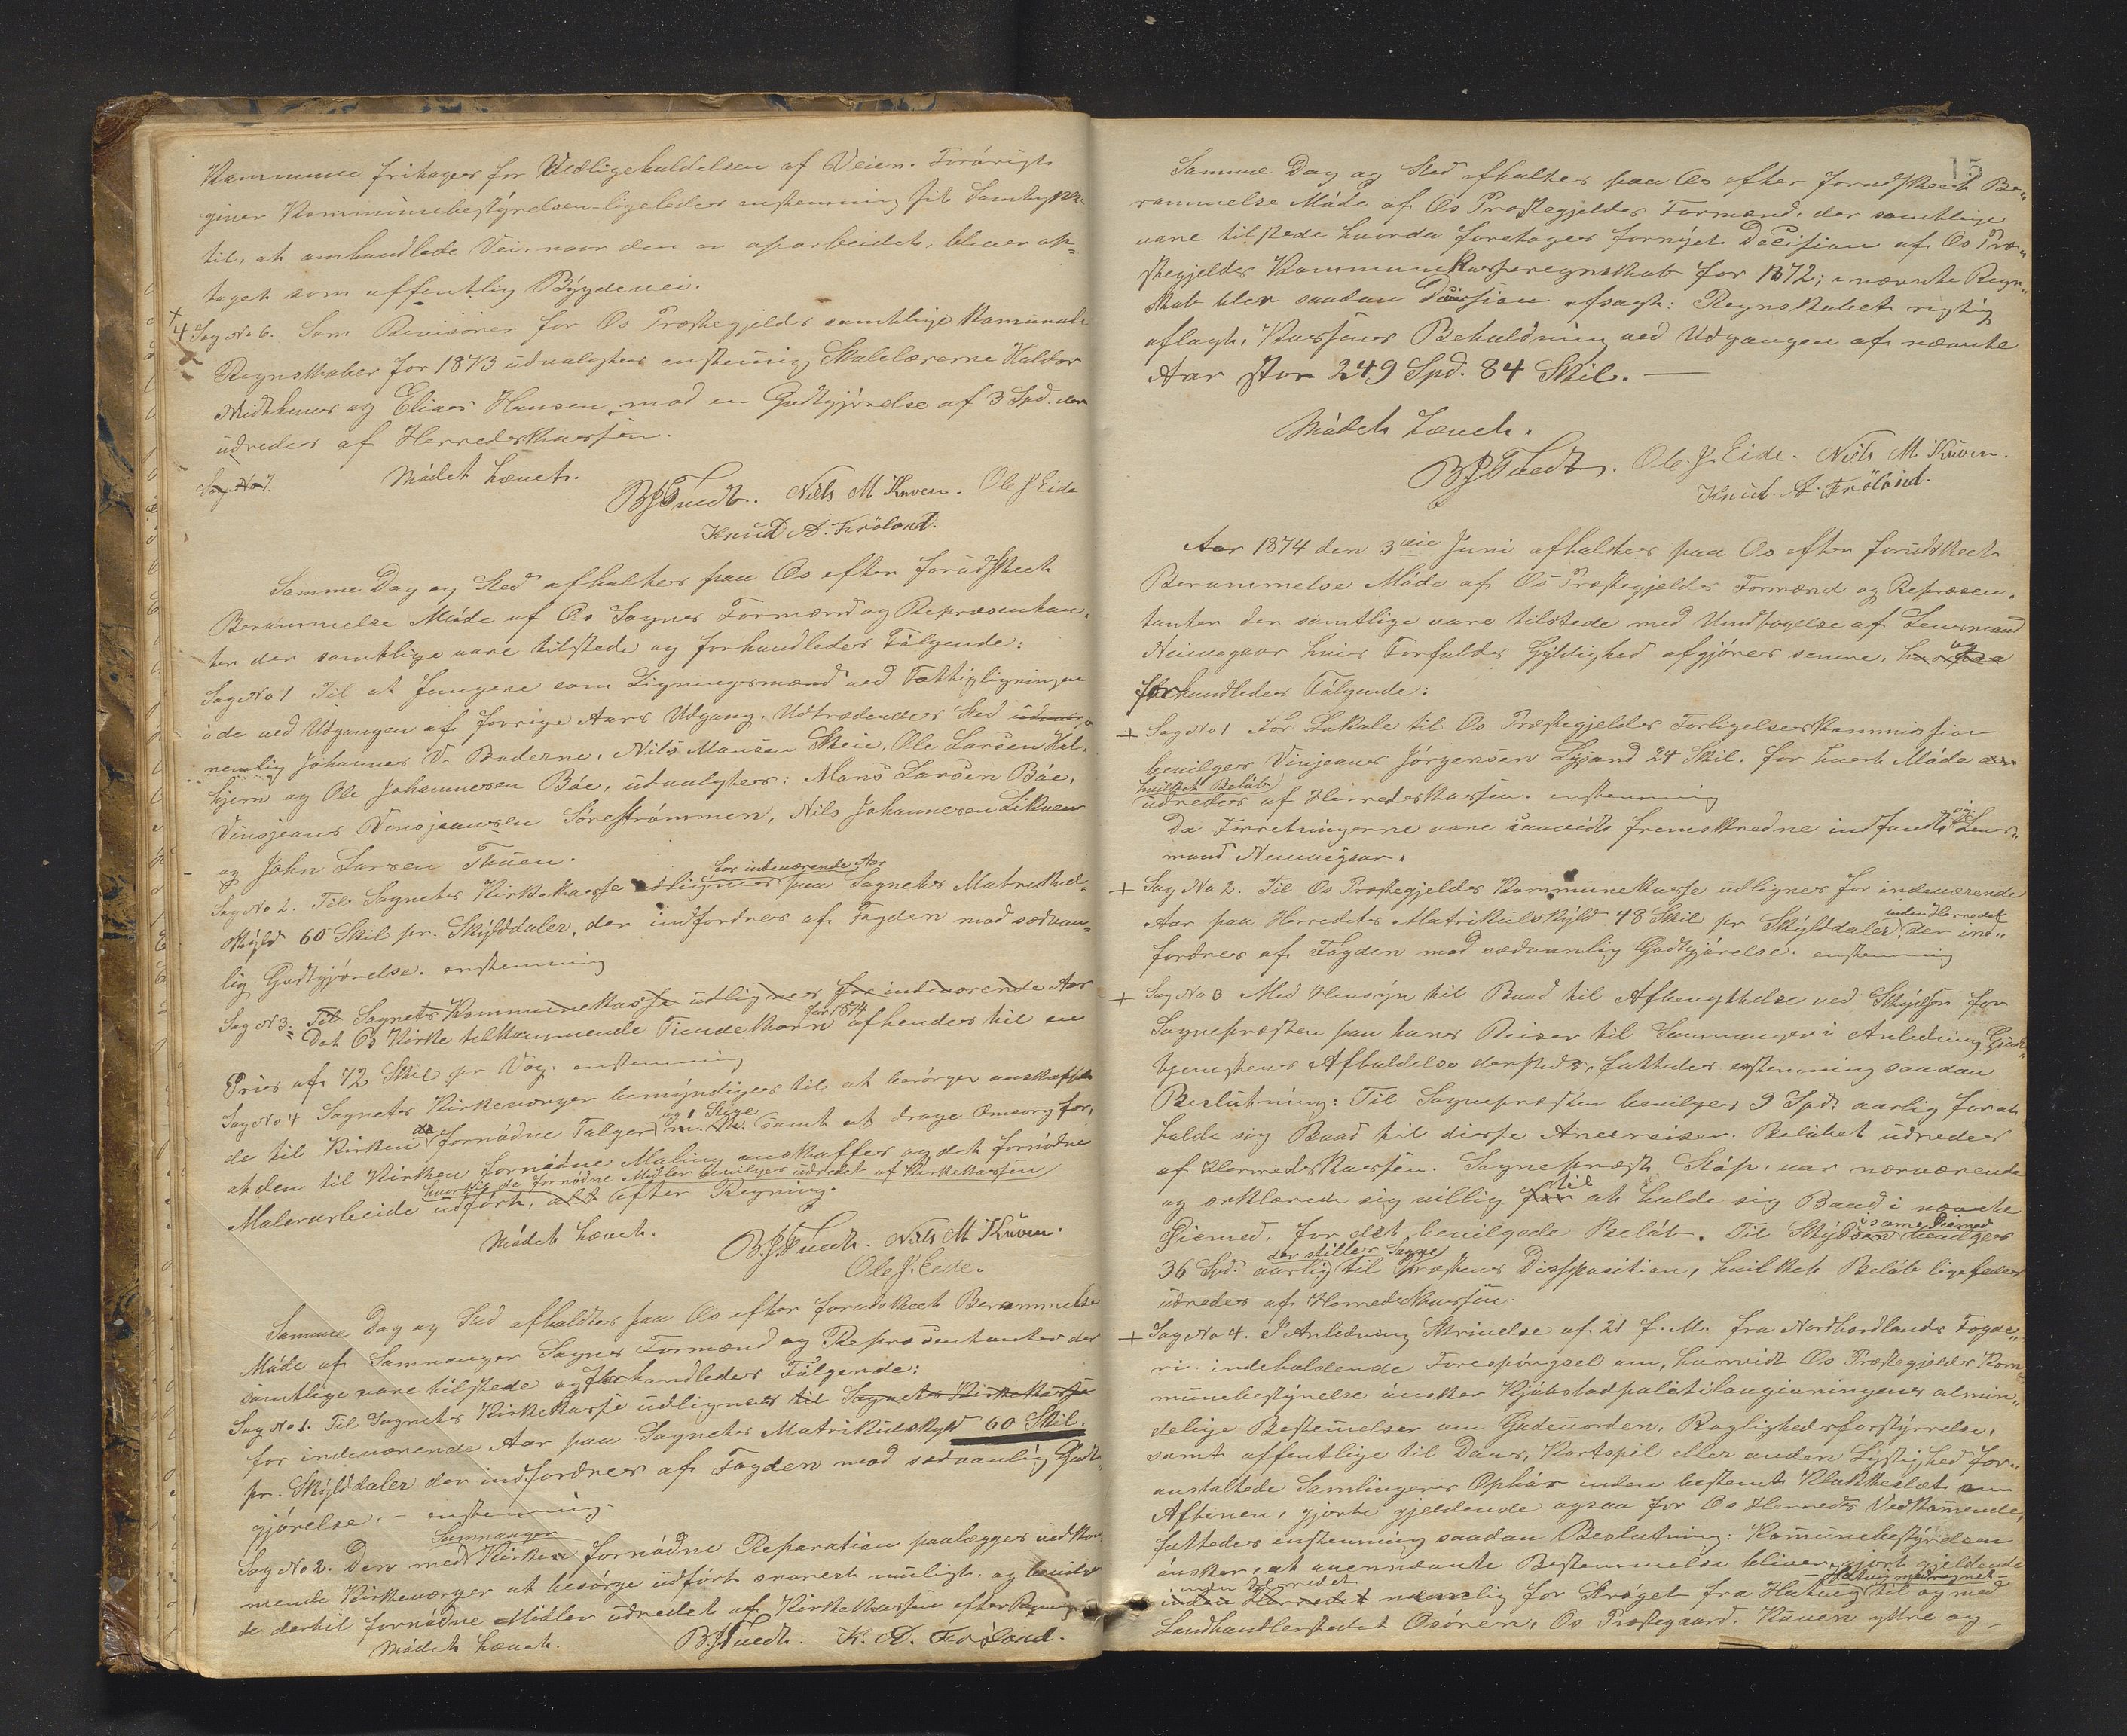 Kommune fritages for Vedligeholdelsen af Veien. Forøvrigt
giver Kommunebestyrelsen ligeledes enstemmig sit Samtykke
til, at omhandlede Vei, naar den er oparbeidet, bliver op-
taget som offentlig Bygdevei.
Sag No 6. Som Revisorer for Os Præstegjelds samtlige Komunale
Regnskaber for 1873 udvalgtes enstemig Skolelærerne Haldor
og Elias Hansen mod en Godtgjørelse af 3 Spd. der
udredes af Herredskassen.
Sag No 7.
Mødet hævet.
B Tuedt. Niels M Kuven. Ole J. Eide
Knud A. Frøland.
Samme Dag og Sted afholtes paa Os efter forudskeet
Berammelse Møde af Os Sogns Formænd og Repræsentan-
ter der samtlige vare tilstede og forhandledes Følgende:
Sag No 1 Til at fungere som Ligningsmænd ved Fattigligningen
i de ved Udgangen af forrige Aars Udgang Udtrædendes Sted
nemlig Johannes V. Baderne, Nils Monsen Skeie, Ole Larsen Hel-
hjem og Ole Johannesen Bøe, udvalgtes: Mons Larsen Bøe,
Vinsjeans Vinsjeansen Sørestrømmen, Nils Johannesen
og John Larsen Tuen.
for indeværende Aar
Sag No 2. Til Sognets Kirkekasse udlignes paa Sognets Matrikul-
skyld 60 Skil pr. Skylddaler, der indfordres af Fogden mod sædvan-
lig Godtgjørelse. enstemmig
Sag N 3. Til Sognets Kommunekasse udlignes for indeværende Aar
for 1874
Det Os Kirke tilkommende Tiendekorn afhendes til en
Pris af 72 Skil pr Vog. enstemmig
Sag No 4 Sognets Kirkeværger bemyndiges til at besørge anskaffet
og 1 Stige
de til Kirken fornødne Talger m. M. samt at drage Omsorg for,
at den til Kirken fornødne Maling anskaffes og det fornødne
hvortil de fornødne Midler bevilges udredet af Kirkekassen
Malerarbeide udført, alt efter Regning.
Mødet hævet.
B. Tuedt. Niels M Kuven.
Ole J. Eide.
Samme Dag og Sted afholdtes paa Os efter forudskeet Berammelse
Møde af Samnanger Sogns Formænd og Repræsentanter der
samtlige vare tilstede og forhandledes Følgende:
Sag No 1. Til Sognets Kirkekasse udlignes til Sognets Kirkekasse
for indeværende Aar paa Sognets Matrikulskyld 60 Skil.
pr. Skylddaler der indfordres af Fogden mod sædvanlig Godt-
gjørelse. – enstemmig.
Samnanger
Sag No 2. Den ved Kirken fornødne Reparation paalægges vedkom-
mende Kirkeværger at besørge udført snarest muligt, og
de dertil fornødne Midler udredet af Kirkekassen efter Regning
Mødet hævet.
B. Tuedt. K. A. Frøland.
15
Samme Dag og Sted afholtes paa Os efter forudskeet Be-
rammelse Møde af Os Præstegjelds Formænd, der samtlige
vare tilstede hvorda foretoges fornyet Decision af Os Præ-
stegjelds Kommunekasseregnskab for 1872; i nævnte Regn-
skab blev saadan Desision afsagt: Regnskabet rigtig
aflagt. Kassens Beholdning ved Udgangen af nævnte
Aar stor 249 Spd. 84 Skil. —
Mødet hævet.
B Tuedt. Ole. J. Eide. Niels M Kuven.
Knud A. Frøland.
Aar 1874 den 3die Juni afholdtes paa Os efter forudskeet
Berammelse Møde af Os Præstegjelds Formænd og Repræsen-
tanter der samtlige vare tilstede med Undtagelse af Lensmand
og
hvis Forfalds Gyldighed afgjøres senere, hvorpaa
forhandledes Følgende:
Sag No 1 For Lokale til Os Præstegjelds Forligelseskommission
bevilges Vinjeans Jørgensen 24 Skil. for hvert Møde
hvilket Beløb
udredes af Herredskassen. enstemmig
sig
Da Forretningerne vare saavidt fremskredne indfandt Lens-
mand
Sag No 2. Til Os Præstegjelds Kommunekasse udlignes for indeværende
Aar paa Herredets Matrikulskyld 48 Skil pr Skylddaler inden Herredet der ind-
fordres af Fogden mod sædvanlig Godtgjørelse. enstemmig
Sag No 3 Med Hensyn til Baad til Afbenyttelse ved Skyds for
Sognepræsten paa hans Reiser til Samnanger i Anledning Guds-
tjenestens Afholdelse dersteds, fattedes enstemmig saadan
Beslutning: Til Sognepræsten bevilges 9 Spd. aarlig for at
holde sig Baad til disse Anexreiser. Beløbet udredes
af Herredskassen. Sognepræst Støp var nærværende
til
og erklærede sig villig for at holde sig Baad i nævnte
Øiemed, for det bevilgede Beløb. Til Skydsen i same Øiemed bevilges
der stilles Sogne
36 Spd. aarlig til Præstens Disposition, hvilket Beløb ligeledes
udredes af Herredskassen.
Sag No 4. I Anledning Skrivelse af 21 f. M. fra Nordhordlands Fogde-
ri indeholdende Forespørgsel om, hvorvidt Os Præstegjelds Kom-
munebestyrelse ønsker Kjøbstadpolitilovgivningens almin-
delige Bestemelser om Gadeuorden, Roglighedsforstyrrelse,
samt offentlige til Dans, Kortspil eller anden Lystighed for-
anstaltede Samlingers Ophør inden bestemt Klokkeslæt om
Aftenen, gjorte gjeldende ogsaa for Os Herreds Vedkomende,
fattedes enstemmig saadan Beslutning: Komunebestyrelsen
ønsker, at ovennævnte Bestemmelse bliver gjort gjeldende
inden Herredet
Hatvig medregnet –
inden Herredet nemlig for Strøget fra Hatvig til og med
Landhandlerstedet Osøren, Os Præstegaard, Kuven yttre og